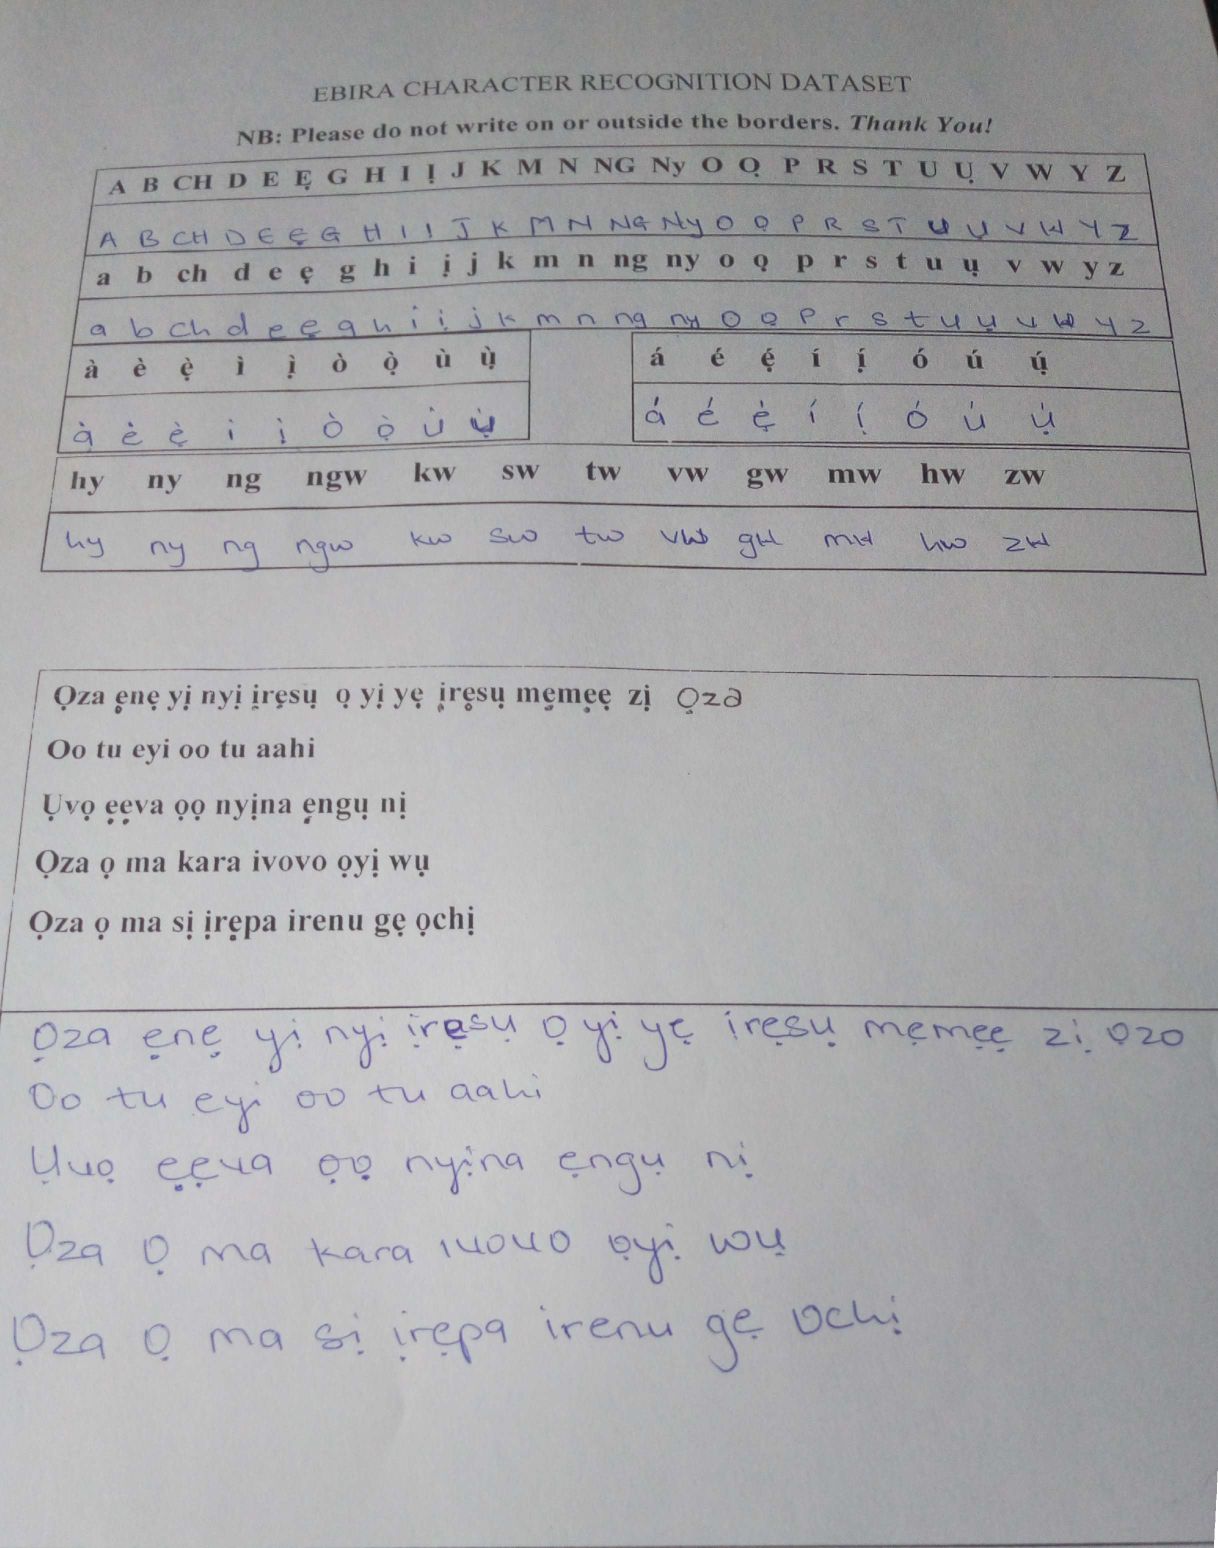 EBIRA CHARACTER RECOGNITION DATASET
NB: Please do not write on or outside the borders. Thank You!
A B CH D E Ẹ G H I Ị J K M N NG Ny O Ọ P R S T U Ụ V W Y Z
A B CH D E Ẹ G H I Ị J K M N NG Ny O Ọ P R S T U Ụ V W Y Z
a b ch d e ẹ g h i ị j k m n ng ny o ọ p r s t u ụ v w y z
a b ch d e ẹ g h i ị j k m n ng ny o ọ p r s t u ụ v w y z
à è ẹ̀ ì ị̀ ò ọ̀ ù ụ̀ á é ẹ́ í ị́ ó ú ụ́
à è ẹ̀ ì ị̀ ò ọ̀ ù ụ̀ á é ẹ́ í ị́ ó ú ụ́
hy ny ng ngw kw sw tw vw gw mw hw zw
hy ny ng ngw kw sw tw vw gw mw hw zw
Ọza ẹnẹ yị nyị ịrẹsụ ọ yị yẹ ịrẹsụ mẹmẹẹ zị Ọza
Oo tu eyi oo tu aahi
Ụvọ ẹẹva ọọ nyịna ẹngụ nị
Ọza ọ ma kara ivovo ọyị wụ
Ọza ọ ma sị ịrẹpa irenu gẹ ọchị
Ọza ẹnẹ yị nyị ịrẹsụ Ọ yị yẹ irẹsụ mẹmẹẹ zị ọzo
Oo tu eyi oo tu aahi
Ụvọ ẹẹva ọọ nyịna ẹngụ nị
Ọza Ọ ma kara ivovo ọyị wụ
Ọza Ọ ma sị ịrẹpa irenu gẹ ochị